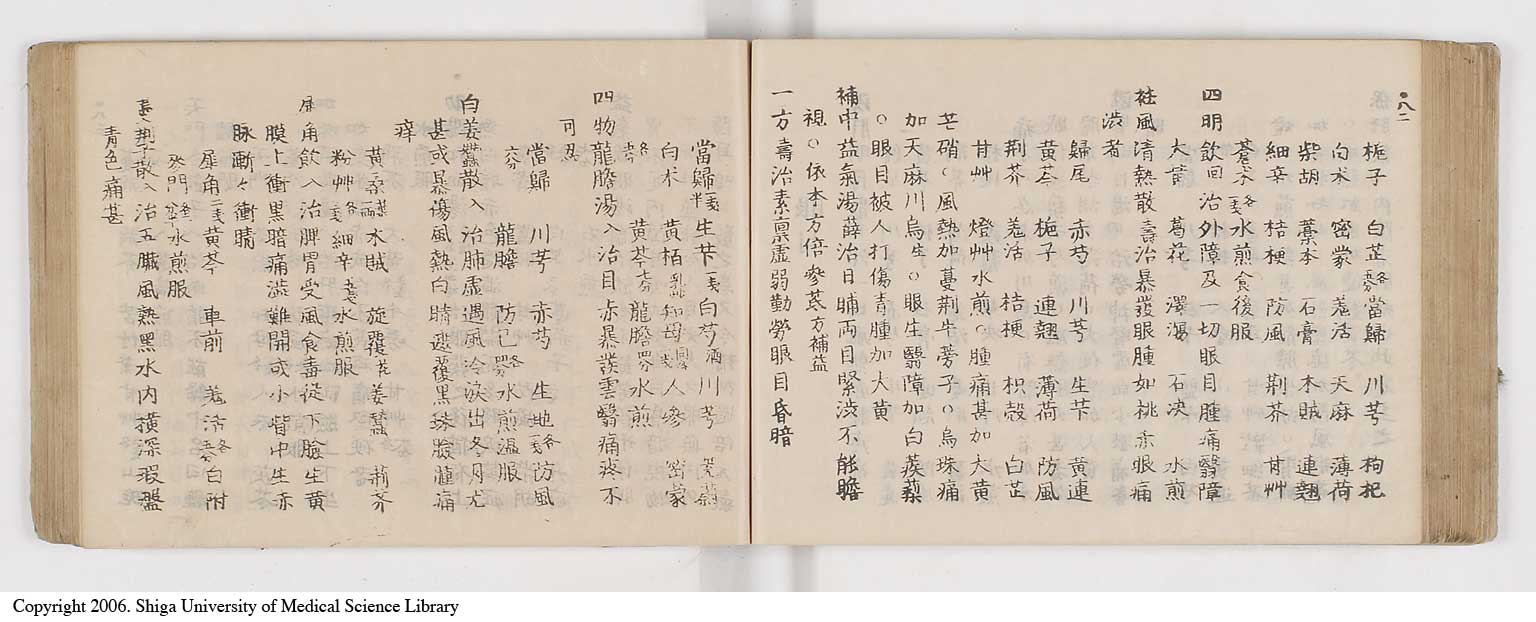 梔子 白芷各 當歸 川芎 枸杞
白朮 密蒙 羗活 天麻 薄荷
柴胡 藁本 石膏 木賊 連翹
細辛 桔梗 防風 荆芥 甘艸
蒼朮各 水煎食後服
四明飲 治外障及一切眼目腫痛翳障
大黄 葛花 澤瀉 石决 水煎
祛風清熱散 壽治暴發眼腫如桃赤眼痛
渋者
歸尾 赤芍 川芎 生芐 黄連
黄芩 梔子 連翹 薄荷 防風
荆芥 羗活 桔梗 枳殻 白芷
甘艸 燈艸水煎○腫痛甚加大黄
芒硝○風熱加蔓荆牛蒡子○烏珠痛
加天麻川烏生○眼生翳障加白蒺藜
○眼目被人打傷青腫加大黄
補中益氣湯 薛治日晡両目緊渋不能瞻
視○依本方倍參芪
一方 壽治素禀虚弱勤勞眼目昏暗
當歸 生芐 白芍酒 川芎
白朮 黄栢乳 知母 人參 密蒙
四物龍膽湯 入治目赤暴發雲翳痛疼不
可忍
當歸 川芎 赤芍 生地各 防風
龍膽 防已各 水煎温服
白姜蠶散 入治肺虚遇風冷淚出冬月尤
甚或暴傷風熱白睛遮覆黒珠瞼腫痛
痒
黄桑 木賊 旋覆花 姜蠶 荆芥
粉艸各 細辛 水煎服
犀角飲 入治脾胃受風食毒從下瞼生黄
膜上衝黒暗痛澁難開或小眥中生赤
脉漸々衝睛
犀角 黄芩 車前 羗活各 白附
麥門 水煎服
蔓荆子散 入治五臓風熱黑水内横深瑕盤
青色痛甚
Copyright 2006. Shiga University of Medical Science Library